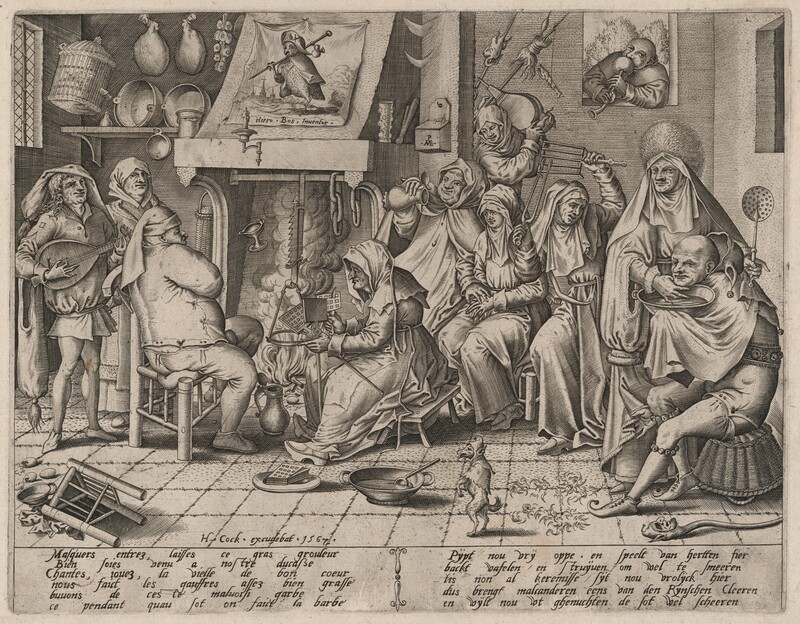 Hiero · Bos · Inventor ·
P
ME
H · Cock · excudebat · 1567
Masquers entrez, laisses ce gras grouleur
Bien soies venu a nostre ducasse
Chantes, jouez, la vielle de bon coeur
nous faict les gauffres assez bien grasse
buuons de ces te maluoisi garbe
ce pendant quau sot on faict la barbe
Pijpt nou vrij oppe · en speelt van hertten fier
backt vafelen en truijuen om wel te smeeren
tis non al keremisse sijt nou vrolijck hier
dus brengt malcanderen eens van den Rijnschen Cleeren
en wijlt nou wt ghenuchten de sot wel scheeren